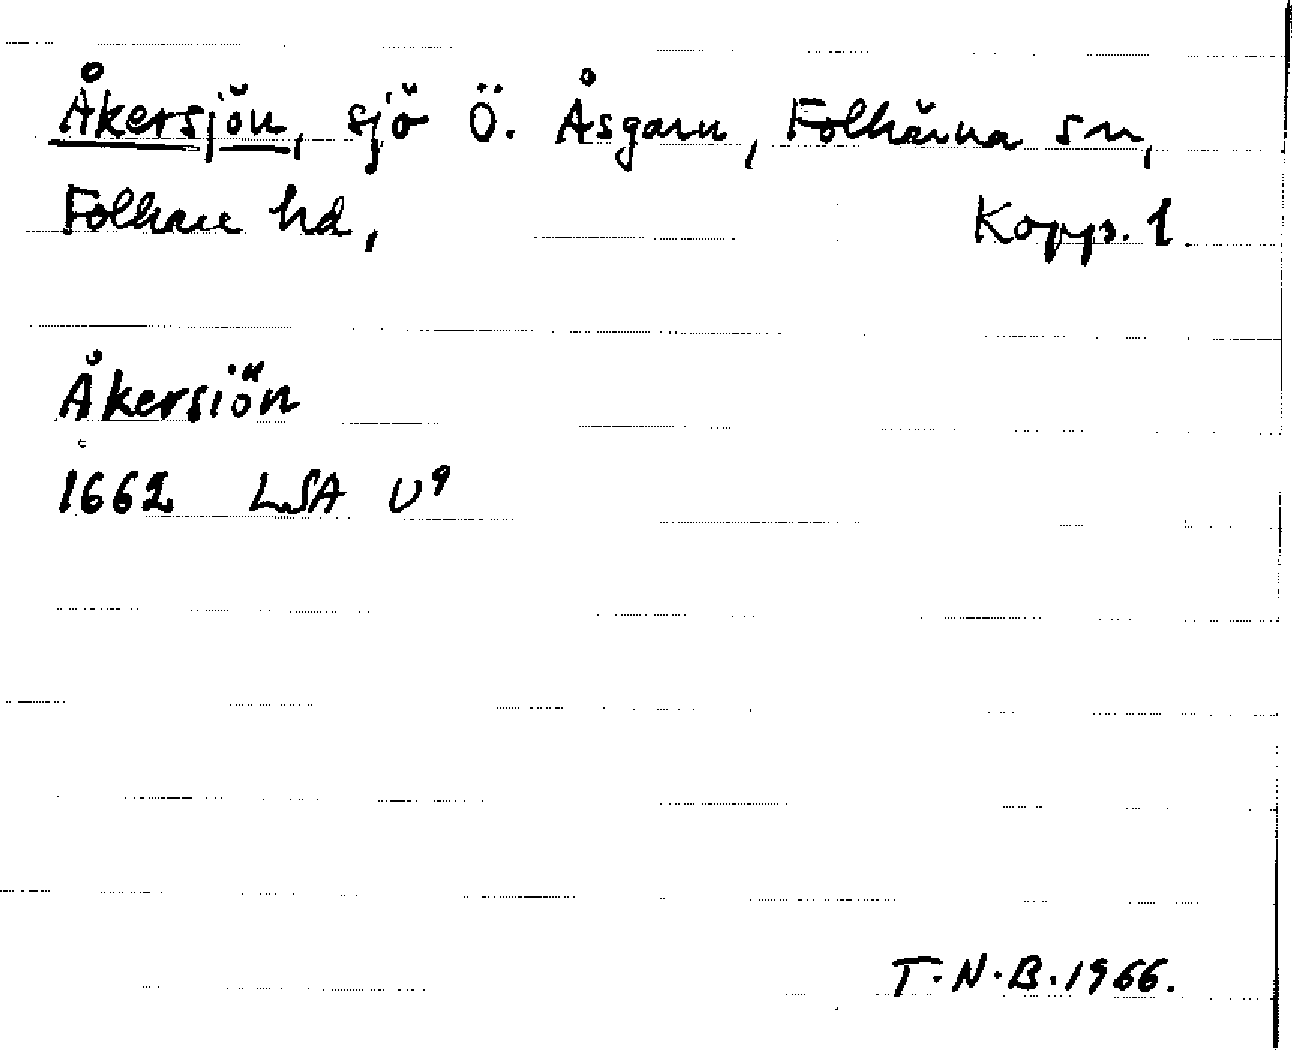 Åkersjön, sjö Ö. Åsgarn, Folkärna sn,
Folkare hd, Kopp. l.
Åkersiön
1662 LSA U9
T.N.B. 1966.